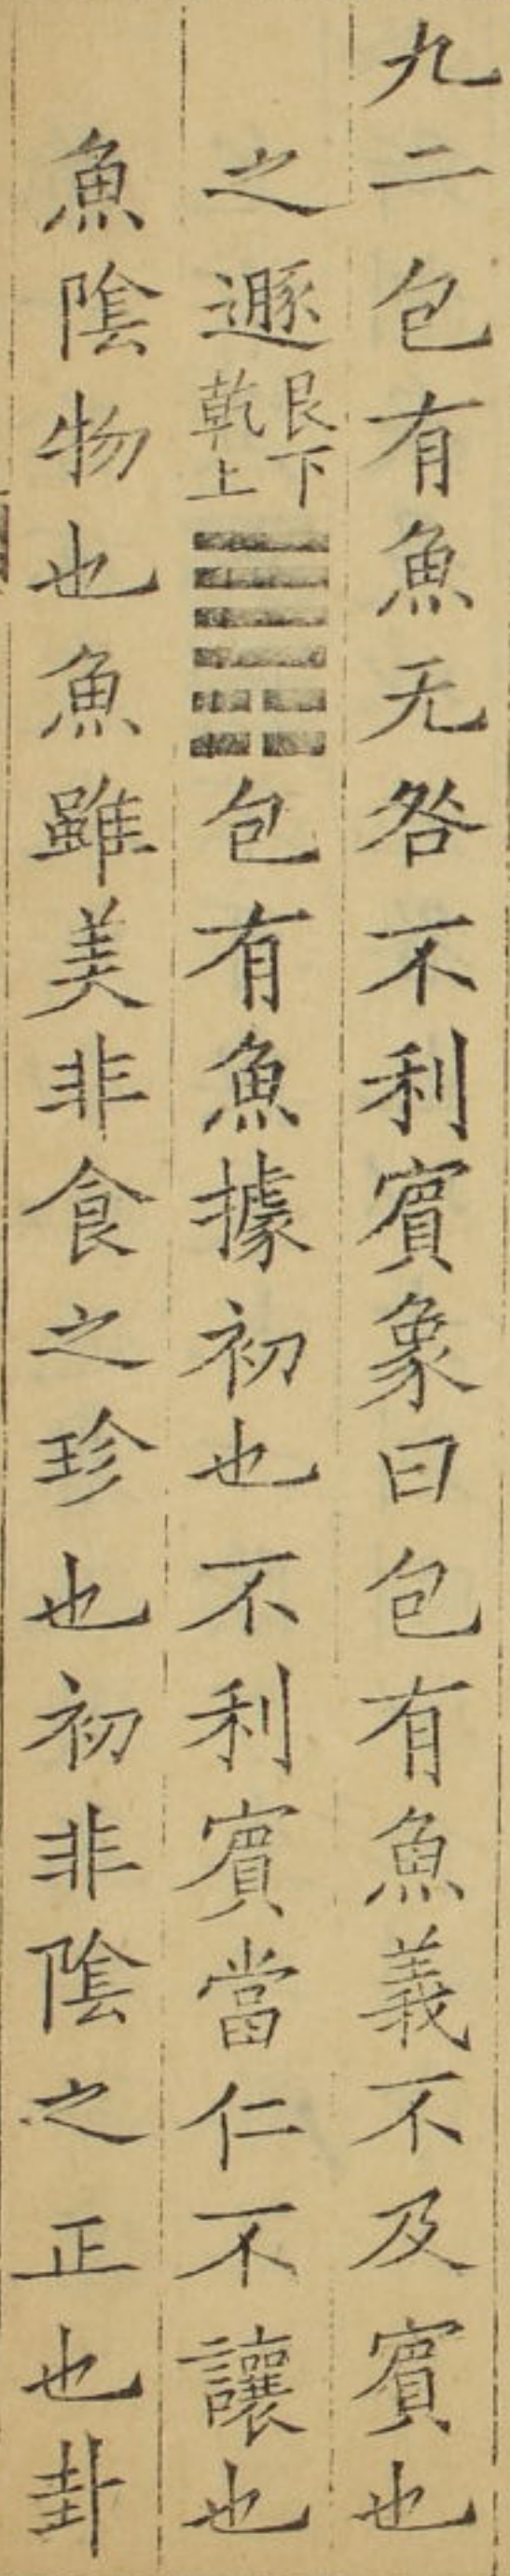 九二包有魚无咎不利賔象曰包有魚義不及賔也
之遯艮下乾上䷠包有魚據初也不利賔當仁不讓也
魚隂物也魚雖美非食之珍也初非隂之正也卦